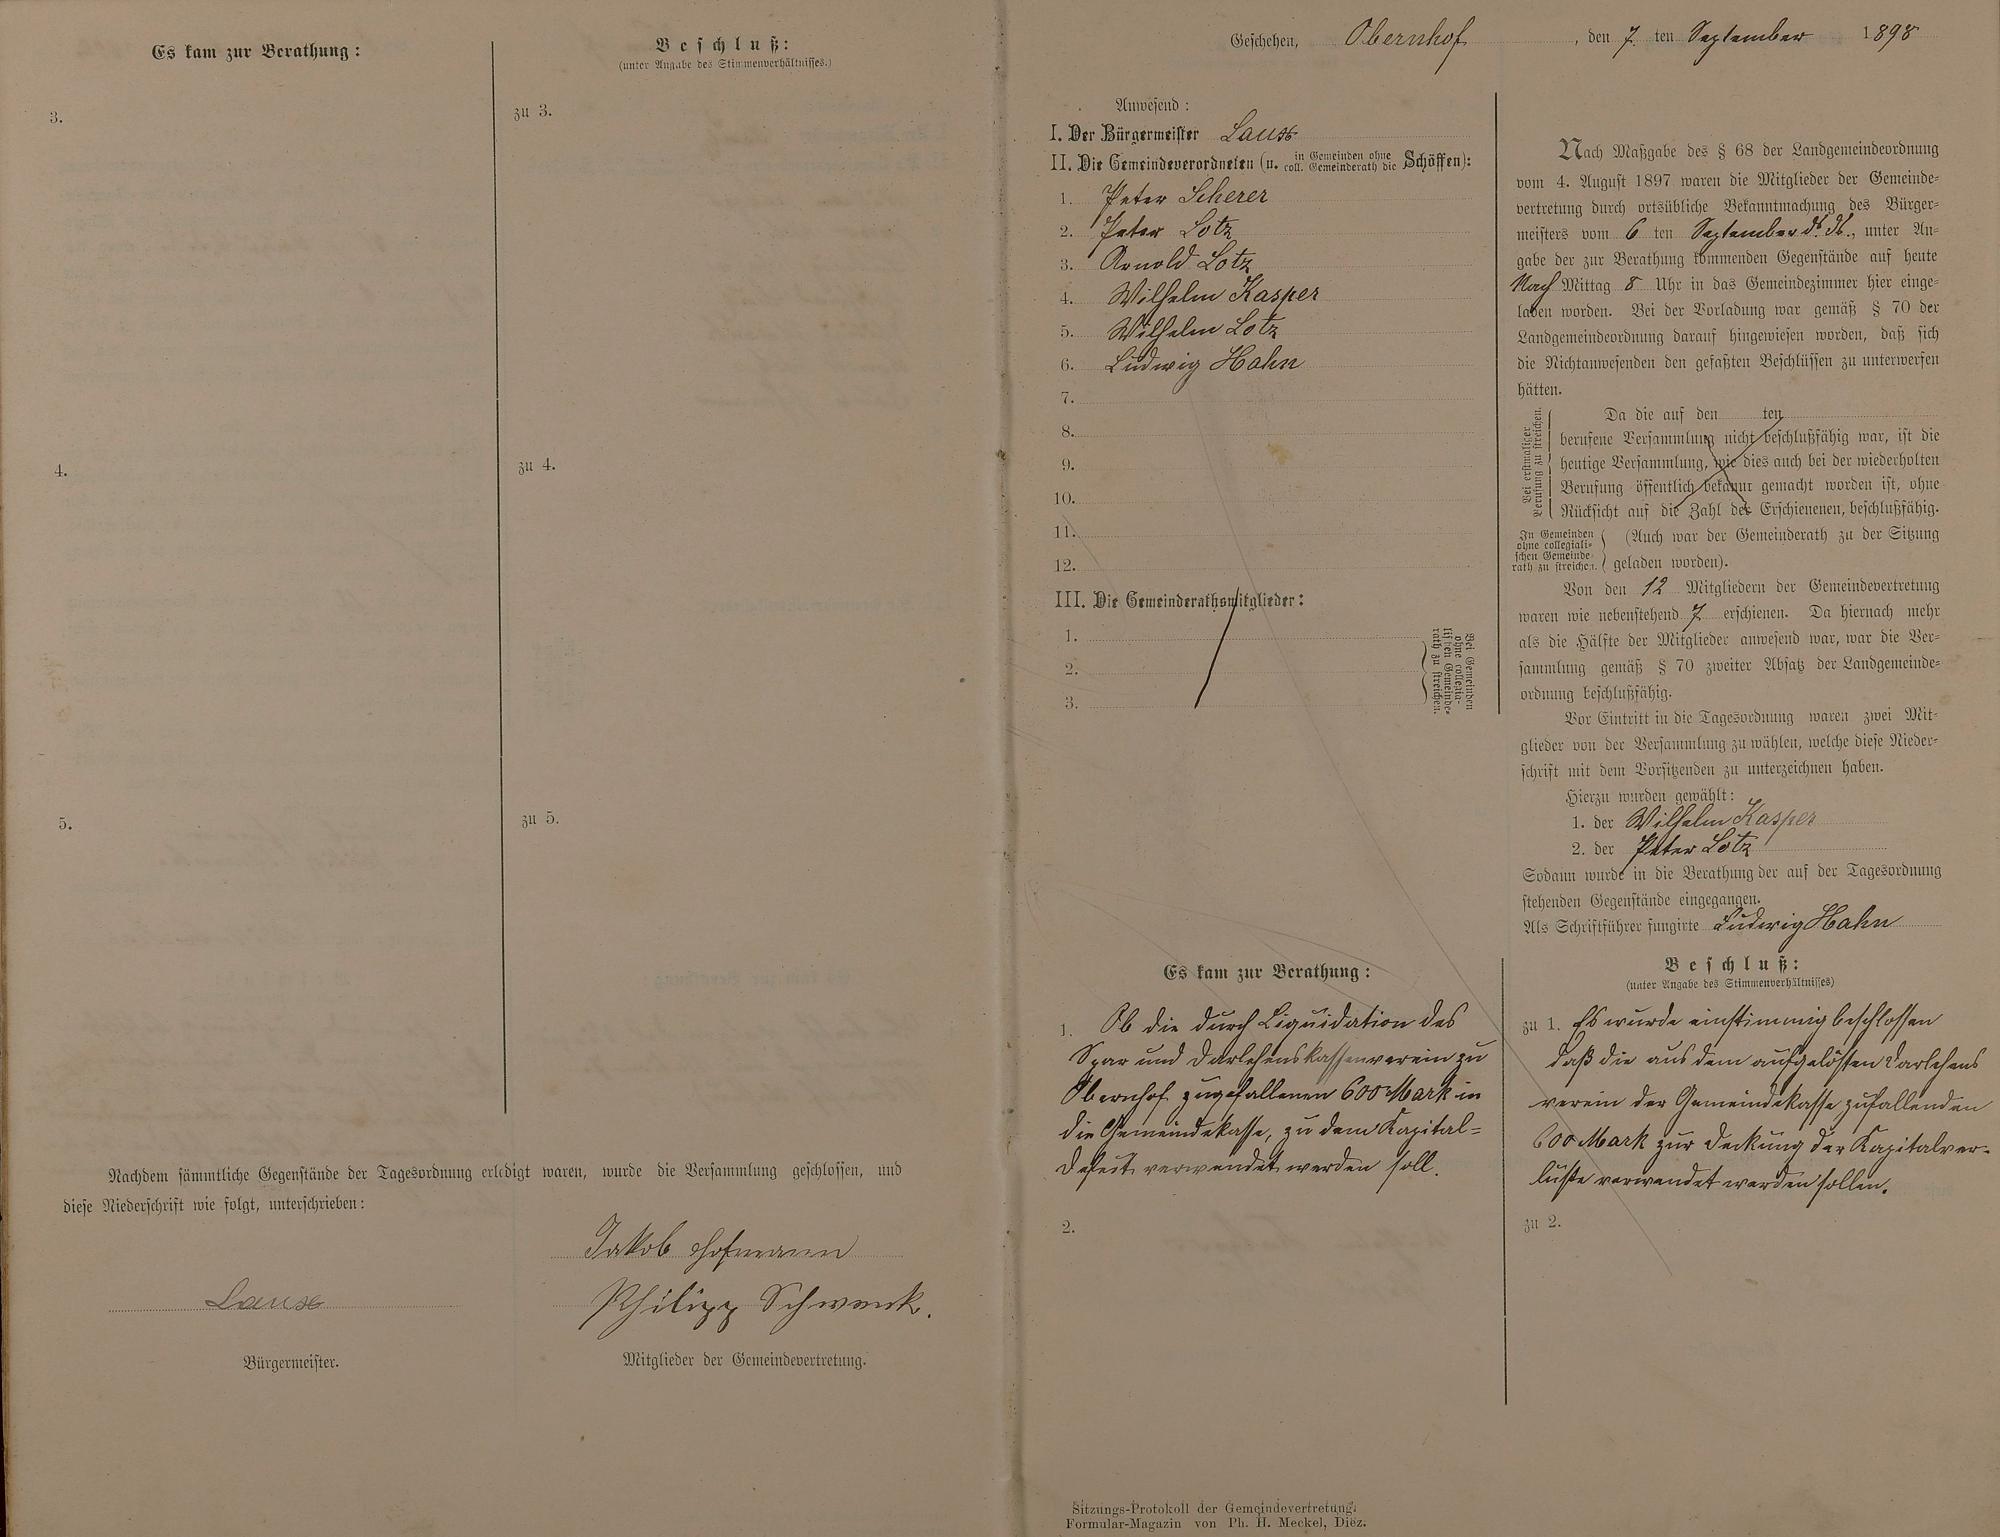 Es kam zur Berathung:
Beschluß:
(unter Angabe des Stimmenverhältnisses.)
3.
zu 3.
4.
zu 4.
5.
zu 5.
Nachdem sämmtliche Gegenstände der Tagesordnung erledigt waren, wurde die Versammlung geschlossen, und
diese Niederschrift wie folgt, unterschrieben:
Jakob Hofmann
Philipp Schwenk.
Bürgermeister.
Mitglieder der Gemeindevertretung.
Geschehen, Obernhof, den 7 ten September 1898
Anwesend:
I. Der Bürgermeister
II. Die Gemeindeverordneten (u. in Gemeinden ohne coll. Gemeinderath die Schöffen):
1. Peter Scherer
2. Peter Lotz
3. Arnold Lotz
4. Wilhelm Kasper
5. Wilhelm Lotz
6. Ludwig Hahn
7.
8.
9.
10.
11.
12.
III. Die Gemeinderathsmitglieder:
1.
2.
3.
Bei Gemeinden
ohne collegia-
lischen Gemeinde-
rath zu streichen.
Nach Maßgabe des § 68 der Landgemeindeordnung
vom 4. August 1897 waren die Mitglieder der Gemeinde-
vertretung durch ortsübliche Bekanntmachung des Bürger-
meisters vom 6 ten September ds. Js., unter An-
gabe der zur Berathung kommenden Gegenstände auf heute
Nach Mittag 8 Uhr in das Gemeindezimmer hier einge-
laden worden. Bei der Vorladung war gemäß § 70 der
Landgemeindeordnung darauf hingewiesen worden, daß sich
die Nichtanwesenden den gefaßten Beschlüssen zu unterwerfen
hätten.
Bei erstmaliger
Berufung zu streichen.
Da die auf den ten
berufene Versammlung nicht beschlußfähig war, ist die
heutige Versammlung, wie dies auch bei der wiederholten
Berufung öffentlich bekannt gemacht worden ist, ohne
Rücksicht auf die Zahl der Erschienenen, beschlußfähig.
In Gemeinden
ohne collegiali-
schen Gemeinde-
rath zu streichen.
(Auch war der Gemeinderath zu der Sitzung
geladen worden).
Von den 12 Mitgliedern der Gemeindevertretung
waren wie nebenstehend 7 erschienen. Da hiernach mehr
als die Hälfte der Mitglieder anwesend war, war die Ver-
sammlung gemäß § 70 zweiter Absatz der Landgemeinde-
ordnung beschlußfähig.
Vor Eintritt in die Tagesordnung waren zwei Mit-
glieder von der Versammlung zu wählen, welche diese Nieder-
schrift mit dem Vorsitzenden zu unterzeichnen haben.
Hierzu wurden gewählt:
1. der Wilhelm Kasper
2. der Peter Lotz
Sodann wurde in die Berathung der auf der Tagesordnung
stehenden Gegenstände eingegangen.
Als Schriftführer fungirte Ludwig Hahn
Es kam zur Berathung:
1. Ob die durch Liquidation des
Spar und Darlehenskassenverein zu
Obernhof zugefallenen 600 Mark in
die Gemeindekasse, zu dem Kapital-
Defect verwendet werden soll.
2.
Beschluß:
(unter Angabe des Stimmenverhältnisses)
zu 1. Es wurde einstimmig beschlossen
daß die aus dem aufgelösten Darlehens
verein der Gemeindekasse zufallenden
600 Mark zur Deckung der Kapitalver-
luste verwendet werden sollen.
zu 2.
Sitzungs-Protokoll der Gemeindevertretung.
Formular-Magazin von Ph. H. Meckel, Diez.